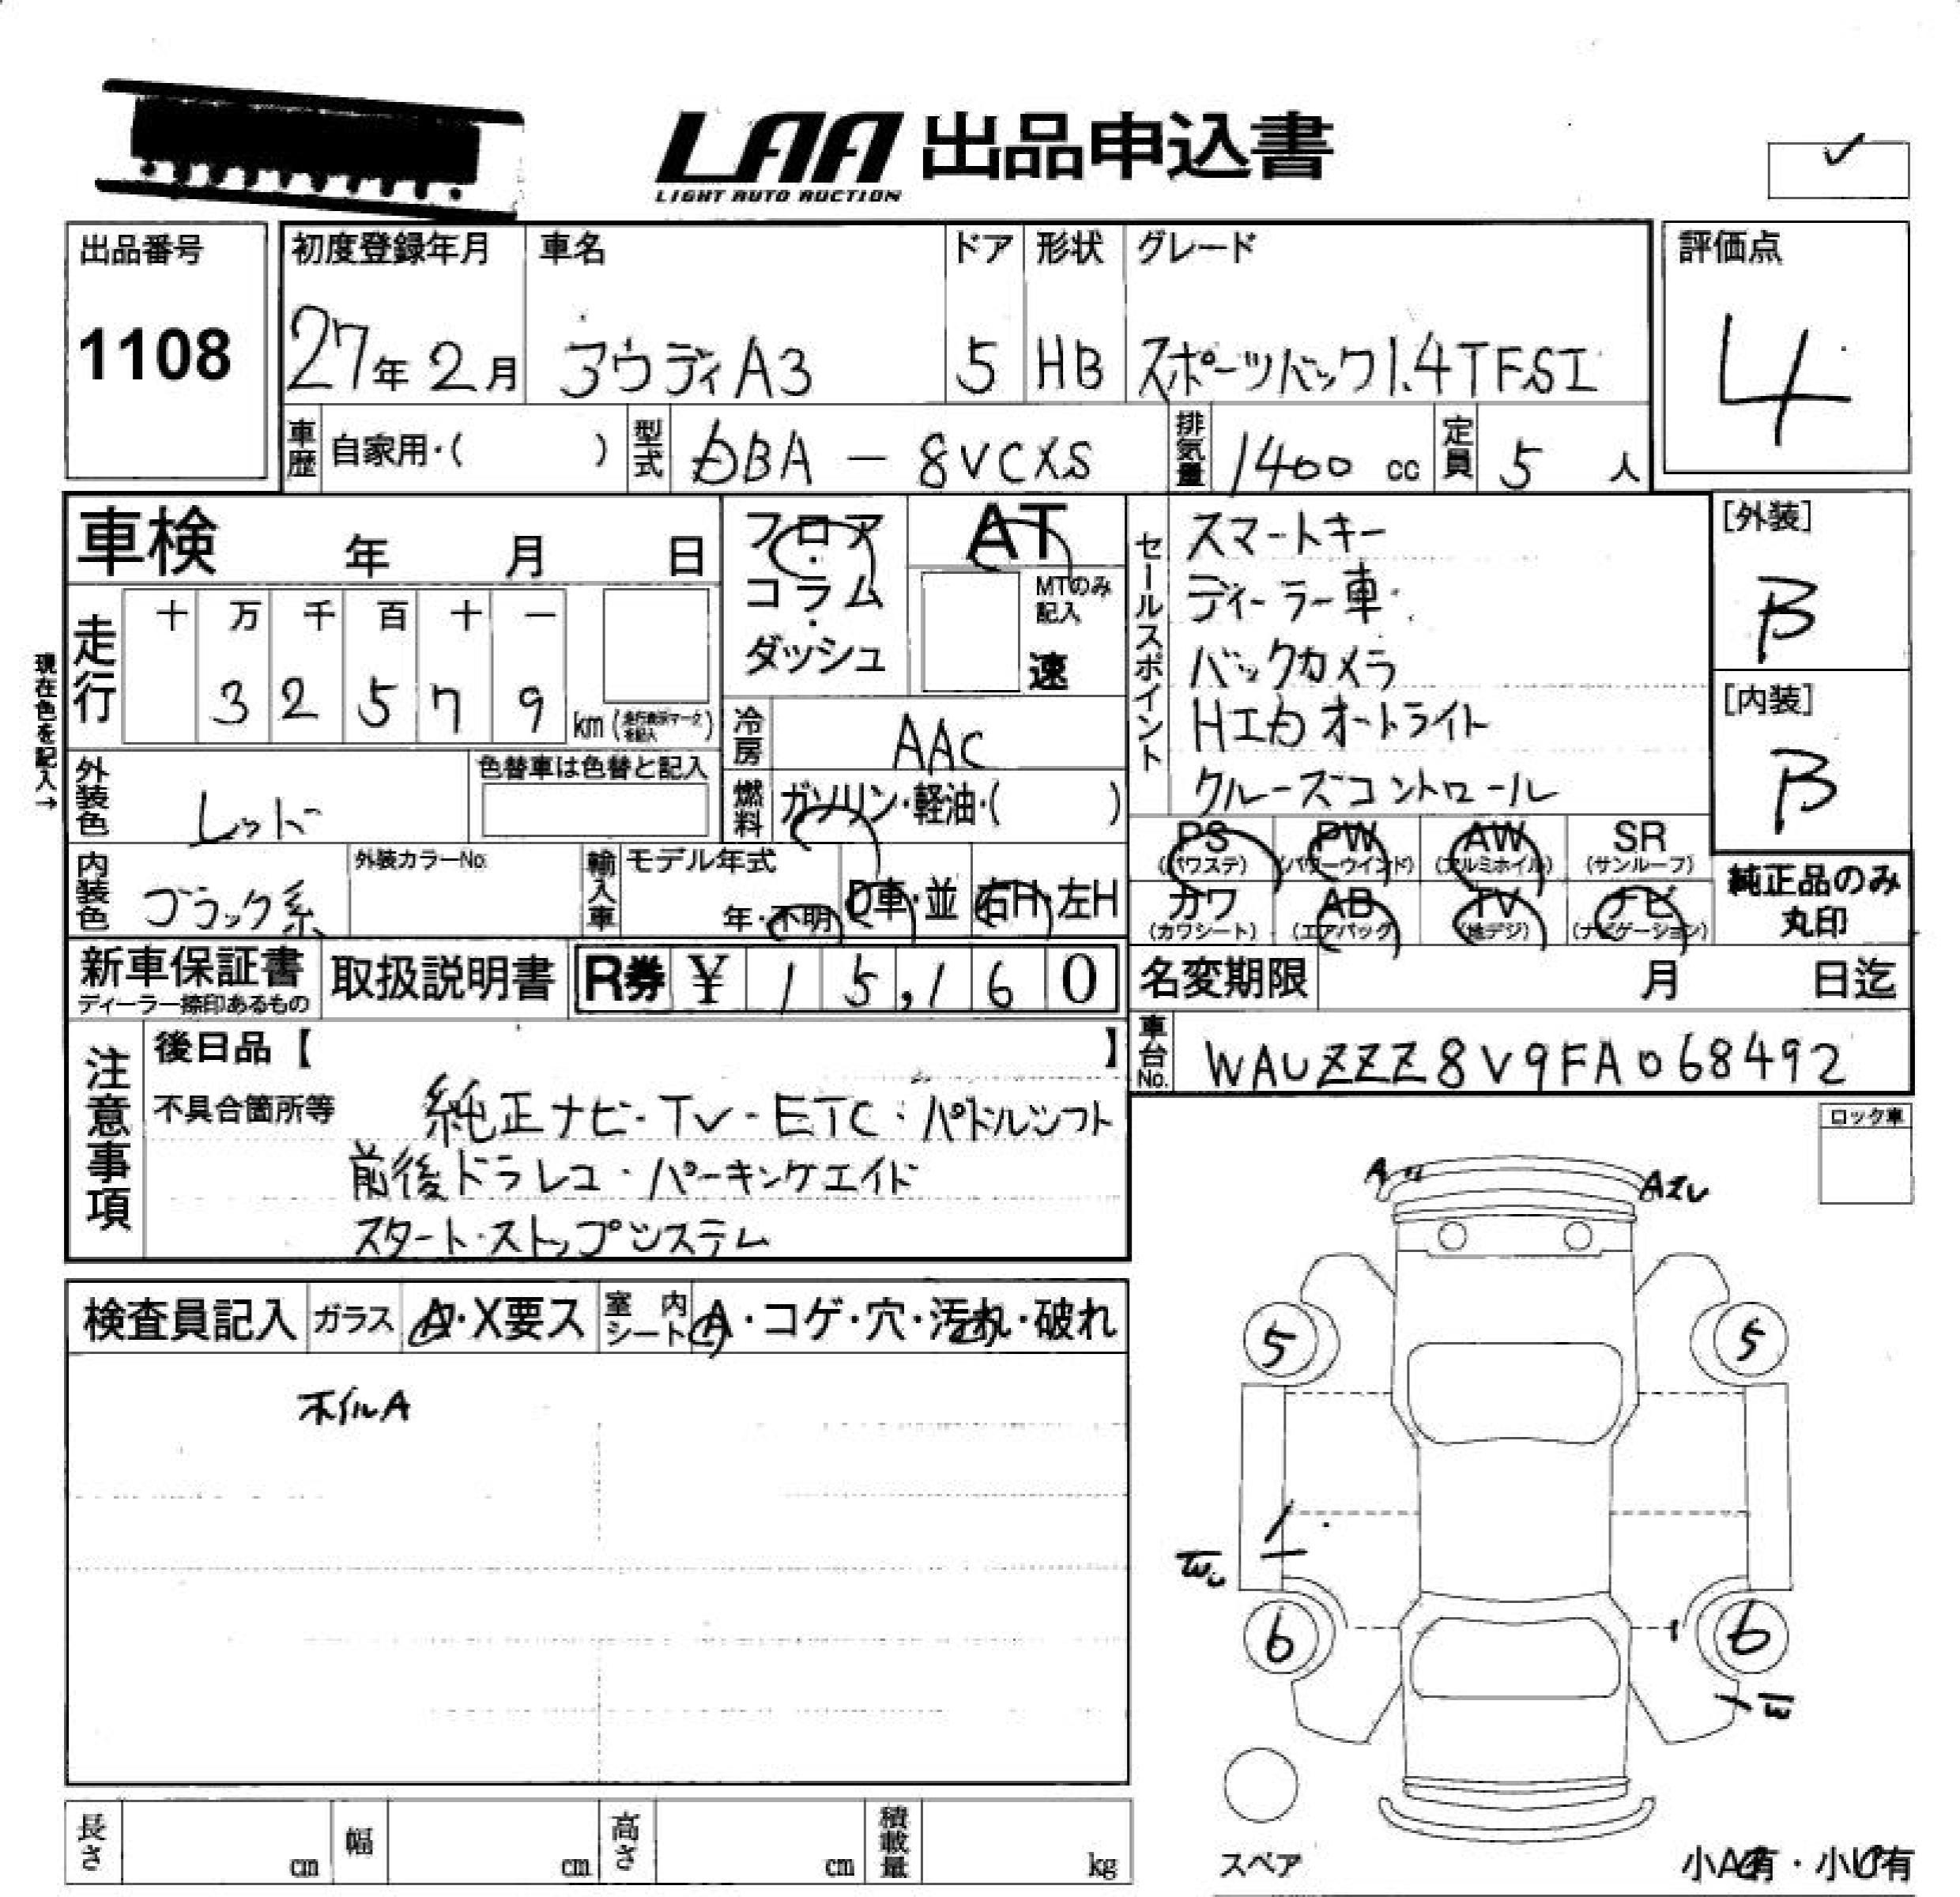 LAA 出品申込書
LIGHT AUTO AUCTION
✓
出品番号
1108
初度登録年月
27年 2月
車名
アウディA3
ドア
5
形状
HB
グレード
スポーツバック1.4TFSI
評価点
4
車歴 自家用・( )
型式 DBA - 8VCXS
排気量 1400 cc
定員 5 人
車検 年 月 日
フロア・コラム・ダッシュ
AT
MTのみ記入
速
セールスポイント
スマートキー
ディーラー車
バックカメラ
HID オートライト
クルーズコントロール
[外装]
B
[内装]
B
現在色を記入→
走行
十 万 千 百 十 一
3 2 5 7 9
km (走行表示マークを記入)
冷房 AAC
外装色 レッド
色替車は色替と記入
燃料 ガソリン・軽油・( )
PS (パワステ)
PW (パワーウインド)
AW (アルミホイル)
SR (サンルーフ)
内装色 ブラック系
外装カラーNo.
輸入車 モデル年式
年・不明
D車・並
右H・左H
カワ (カワシート)
AB (エアバッグ)
TV (地デジ)
ナビ (ナビゲーション)
純正品のみ
丸印
新車保証書
ディーラー捺印あるもの
取扱説明書
R券 ¥ 15,160
名変期限 月 日迄
車台No. WAUZZZ8V9FA068492
注意事項
後日品【 】
不具合箇所等
純正ナビ・TV・ETC・パドルシフト
前後ドラレコ・パーキングエイド
スタート・ストップシステム
ロック車
検査員記入
ガラス A・X要ス
室内シート A・コゲ・穴・汚れ・破れ
ホイルA
5 5
6 6
スペア
長さ cm
幅 cm
高さ cm
積載量 kg
小A有・小U有